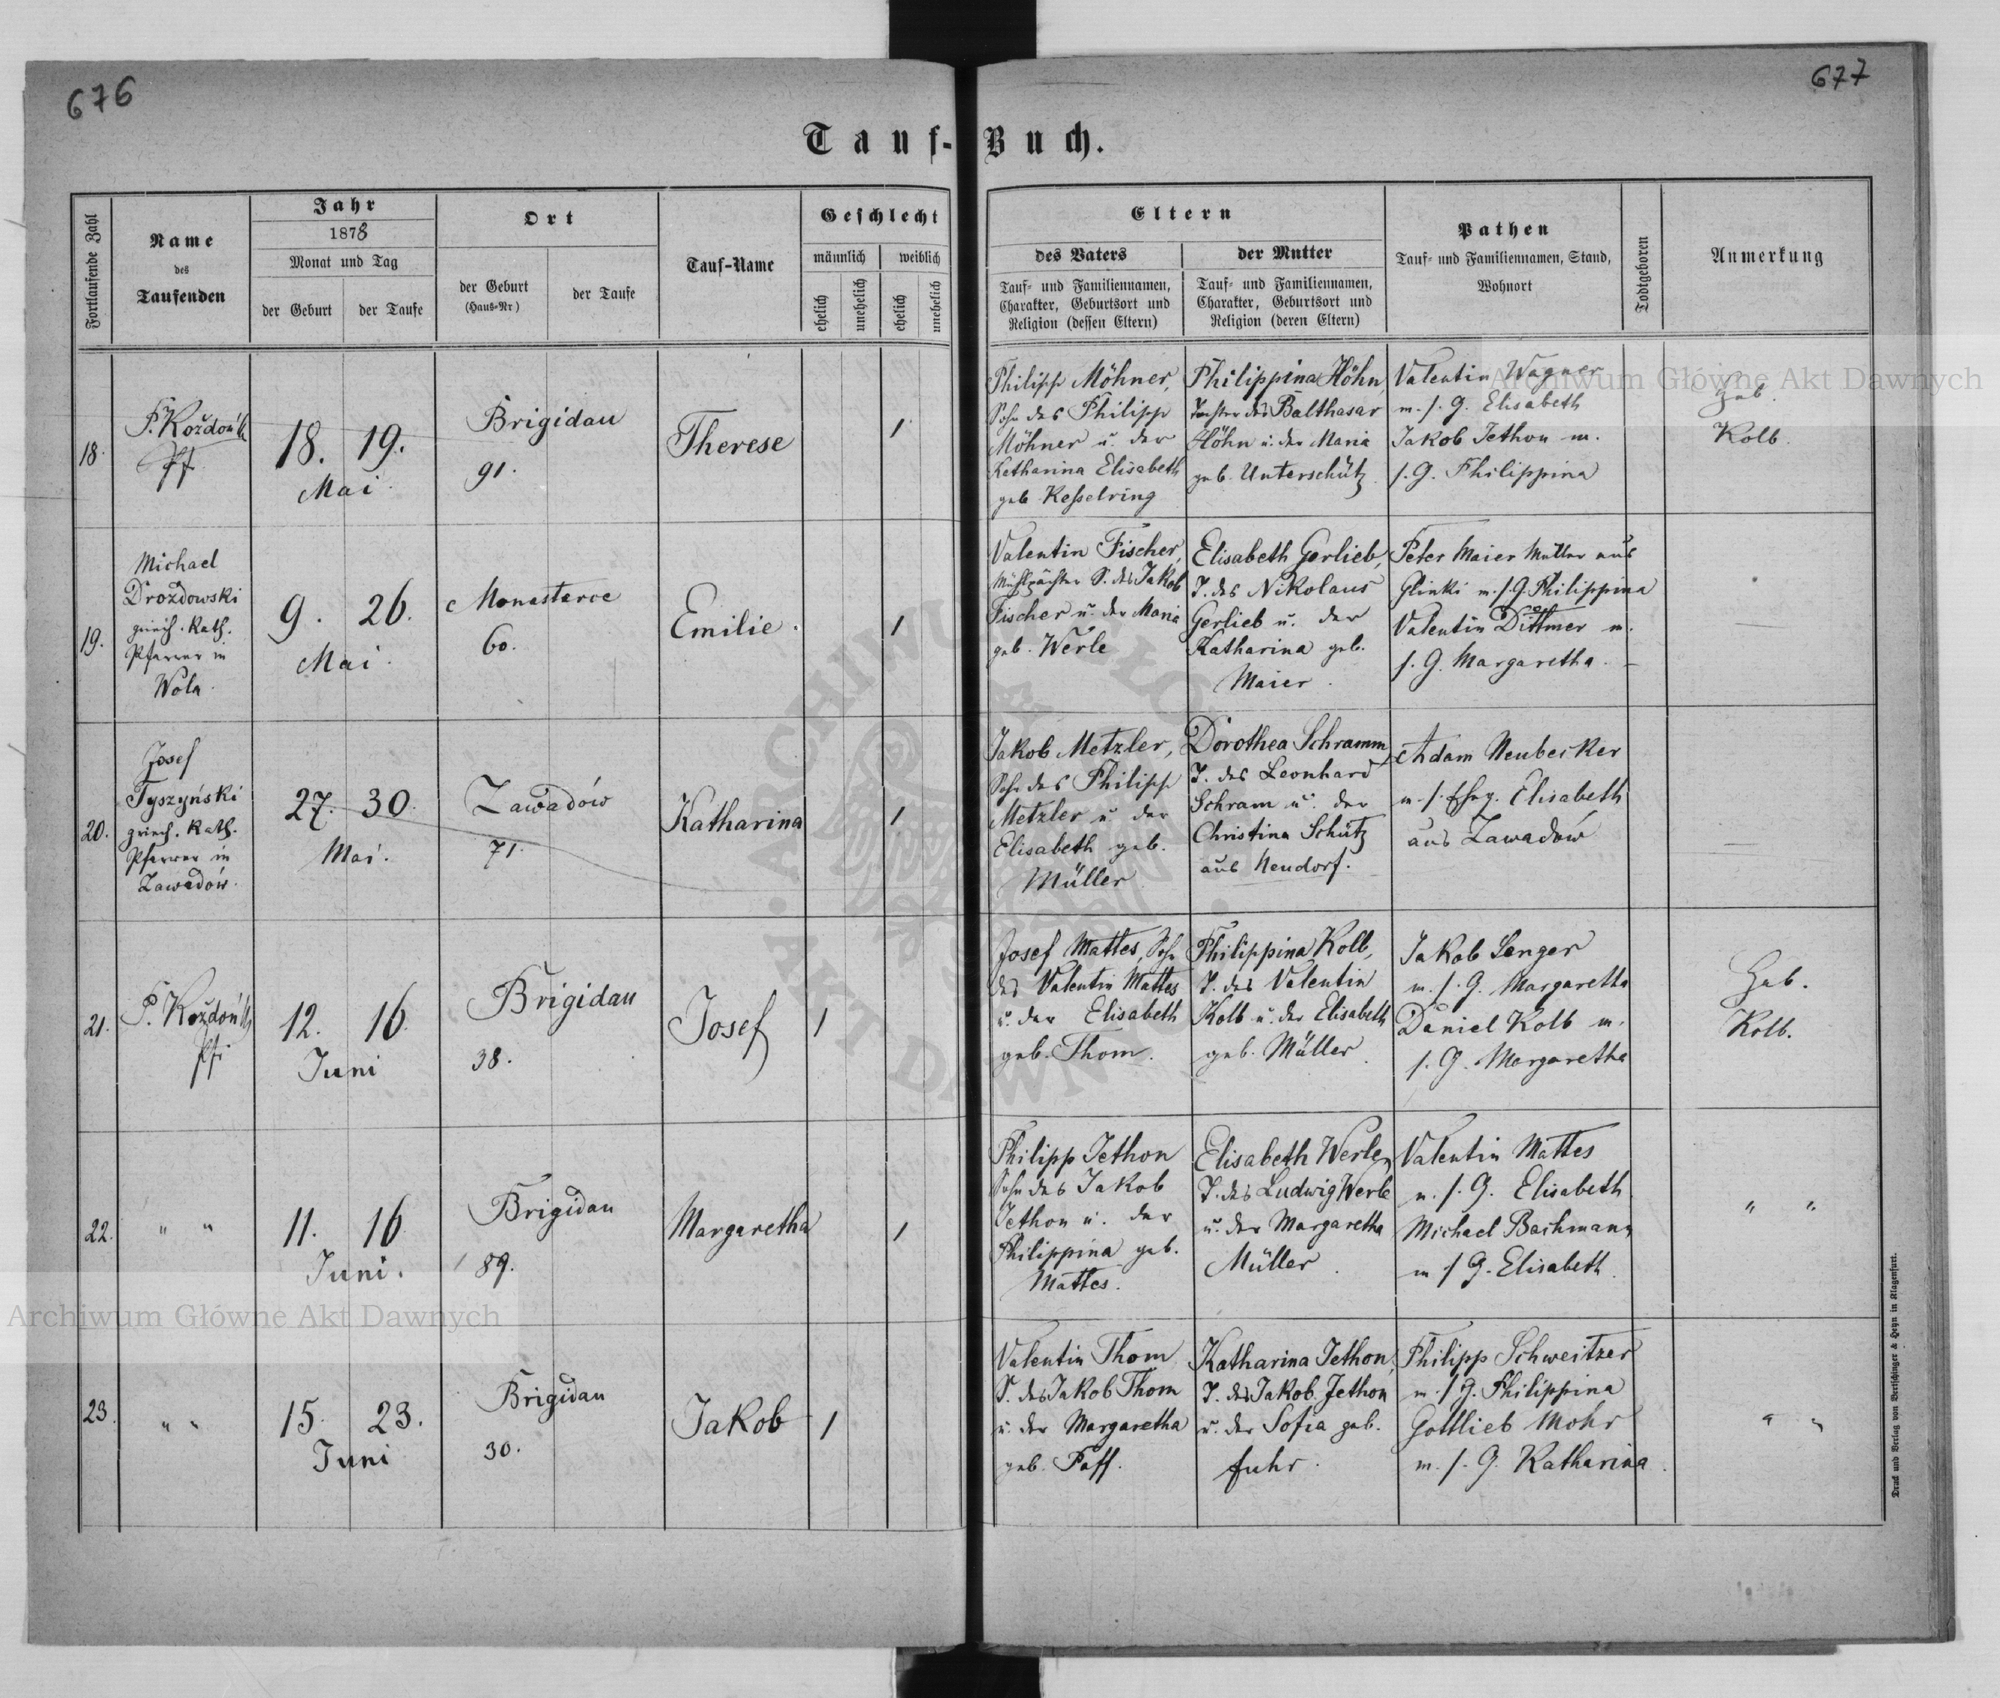 676
677
Tauf-Buch.
Fortlaufende Zahl
Name
des
Taufenden
Jahr
1878
Monat und Tag
der Geburt
der Taufe
Ort
der Geburt
(Haus-Nr)
der Taufe
Tauf-Name
Geschlecht
männlich
weiblich
ehelich
unehelich
ehelich
unehelich
Eltern
des Vaters
Tauf- und Familiennamen,
Charakter, Geburtsort und
Religion (dessen Eltern)
der Mutter
Tauf- und Familiennamen,
Charakter, Geburtsort und
Religion (deren Eltern)
Pathen
Tauf- und Familiennamen, Stand,
Wohnort
Todtgeboren
Anmerkung
18.
Pf.
18. 19.
Mai
Brigidau
91.
Therese
1
Philipp Möhner,
Sohn des Philipp
Möhner u. der
Katharina Elisabeth
geb. Kesselring
Philippina Höhn,
Tochter des Balthasar
Höhn u. der Maria
geb. Unterschütz
Valentin Wagner
m. s. G. Elisabeth
Jakob Jethon m.
s. G. Philippina
Heb.
Kolb.
19.
Michael
Drozdowski
griech. Kath.
Pfarrer in
Wola.
9. 26.
Mai.
Monasterce
60.
Emilie.
1
Valentin Fischer,
Mühlpächter S. des Jakob
Fischer u. der Maria
geb. Werle
Elisabeth Gerlieb,
T. des Nikolaus
Gerlieb u. der
Katharina geb.
Maier.
Peter Maier Müller aus
Glinki m. s. G. Philippina
Valentin Dittmer m.
s. G. Margaretha. –
—
20.
Josef
Tyszyński
griech. Kath.
Pfarrer in
Zawadów.
27. 30.
Mai.
Zawadów
71.
Katharina
1
Jakob Metzler,
Sohn des Philipp
Metzler u. der
Elisabeth geb.
Müller
Dorothea Schramm,
T. des Leonhard
Schram u. der
Christina Schütz
aus Neudorf.
Adam Neubecker
m. s. Eheg. Elisabeth
aus Zawadów
—
21.
12. 16.
Juni
Brigidau
38.
Josef
1
Josef Mattes, Sohn
des Valentin Mattes
u. der Elisabeth
geb. Thom.
Philippina Kolb,
T. des Valentin
Kolb u. der Elisabeth
geb. Müller.
Jakob Senger
m. s. G. Margaretha
Daniel Kolb m.
s. G. Margaretha
Heb.
Kolb.
22.
" "
11. 16
Juni.
Brigidau
89.
Margaretha
1
Philipp Jethon
Sohn des Jakob
Jethon u. der
Philippina geb.
Mattes.
Elisabeth Werle,
T. des Ludwig Werle
u. der Margaretha
Müller.
Valentin Mattes
m. s. G. Elisabeth
Michael Bachmann
m. s. G. Elisabeth.
" "
23.
" "
15. 23.
Juni
Brigidau
30.
Jakob
1
Valentin Thom
S. des Jakob Thom
u. der Margaretha
geb. Paff.
Katharina Jethon,
T. des Jakob Jethon
u. der Sofia geb.
Fuhr.
Philipp Schweitzer
m. s. G. Philippina
Gottlieb Mohr
m. s. G. Katharina.
" "
Druck und Verlag von Bertschinger & Heyn in Klagenfurt.
Archiwum Główne Akt Dawnych
Archiwum Główne Akt Dawnych